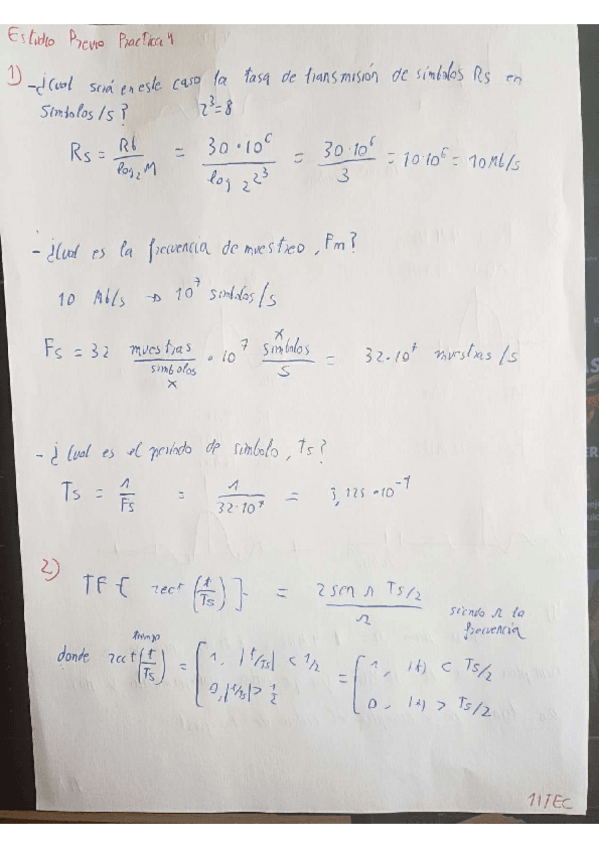 Estudio Previo Practica 4
1) - ¿Cual será en este caso la tasa de transmisión de símbolos Rs en
Simbolos/s? 2^3=8
Rs = Rb/log_2 M = 30·10^6/log_2 2^3 = 30·10^6/3 = 10·10^6 = 10Mb/s
- ¿Cual es la frecuencia de muestreo, Fm?
10 Mb/s → 10^7 simbolos/s
Fs = 32 muestras/simbolos · 10^7 simbolos/s = 32·10^7 muestras/s
x x
- ¿Cual es el período de simbolo, Ts?
Ts = 1/Fs = 1/32·10^7 = 3,125·10^-9
2) TF{ rect(t/Ts)} = 2 sen Ω Ts/2 / Ω siendo Ω la
frecuencia
tiempo
donde rect(t/Ts) = [1, |t/Ts| < 1/2 = [1, |t| < Ts/2
0, |t/Ts| > 1/2 0, |t| > Ts/2
11TEC